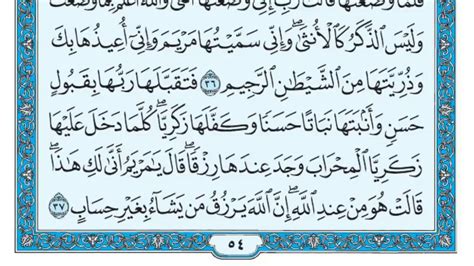 فَلَمَّا وَضَعَتْهَا قَالَتْ رَبِّ إِنِّي وَضَعْتُهَا أُنثَىٰ وَاللَّهُ أَعْلَمُ بِمَا وَضَعَتْ
وَلَيْسَ الذَّكَرُ كَالْأُنثَىٰ ۖ وَإِنِّي سَمَّيْتُهَا مَرْيَمَ وَإِنِّي أُعِيذُهَا بِكَ
وَذُرِّيَّتَهَا مِنَ الشَّيْطَٰنِ الرَّجِيمِ ٣٦ فَتَقَبَّلَهَا رَبُّهَا بِقَبُولٍ
حَسَنٍ وَأَنبَتَهَا نَبَاتًا حَسَنًا وَكَفَّلَهَا زَكَرِيَّا ۖ كُلَّمَا دَخَلَ عَلَيْهَا
زَكَرِيَّا الْمِحْرَابَ وَجَدَ عِندَهَا رِزْقًا ۖ قَالَ يَٰمَرْيَمُ أَنَّىٰ لَكِ هَٰذَا ۖ
قَالَتْ هُوَ مِنْ عِندِ اللَّهِ ۖ إِنَّ اللَّهَ يَرْزُقُ مَن يَشَآءُ بِغَيْرِ حِسَابٍ ٣٧
٥٤